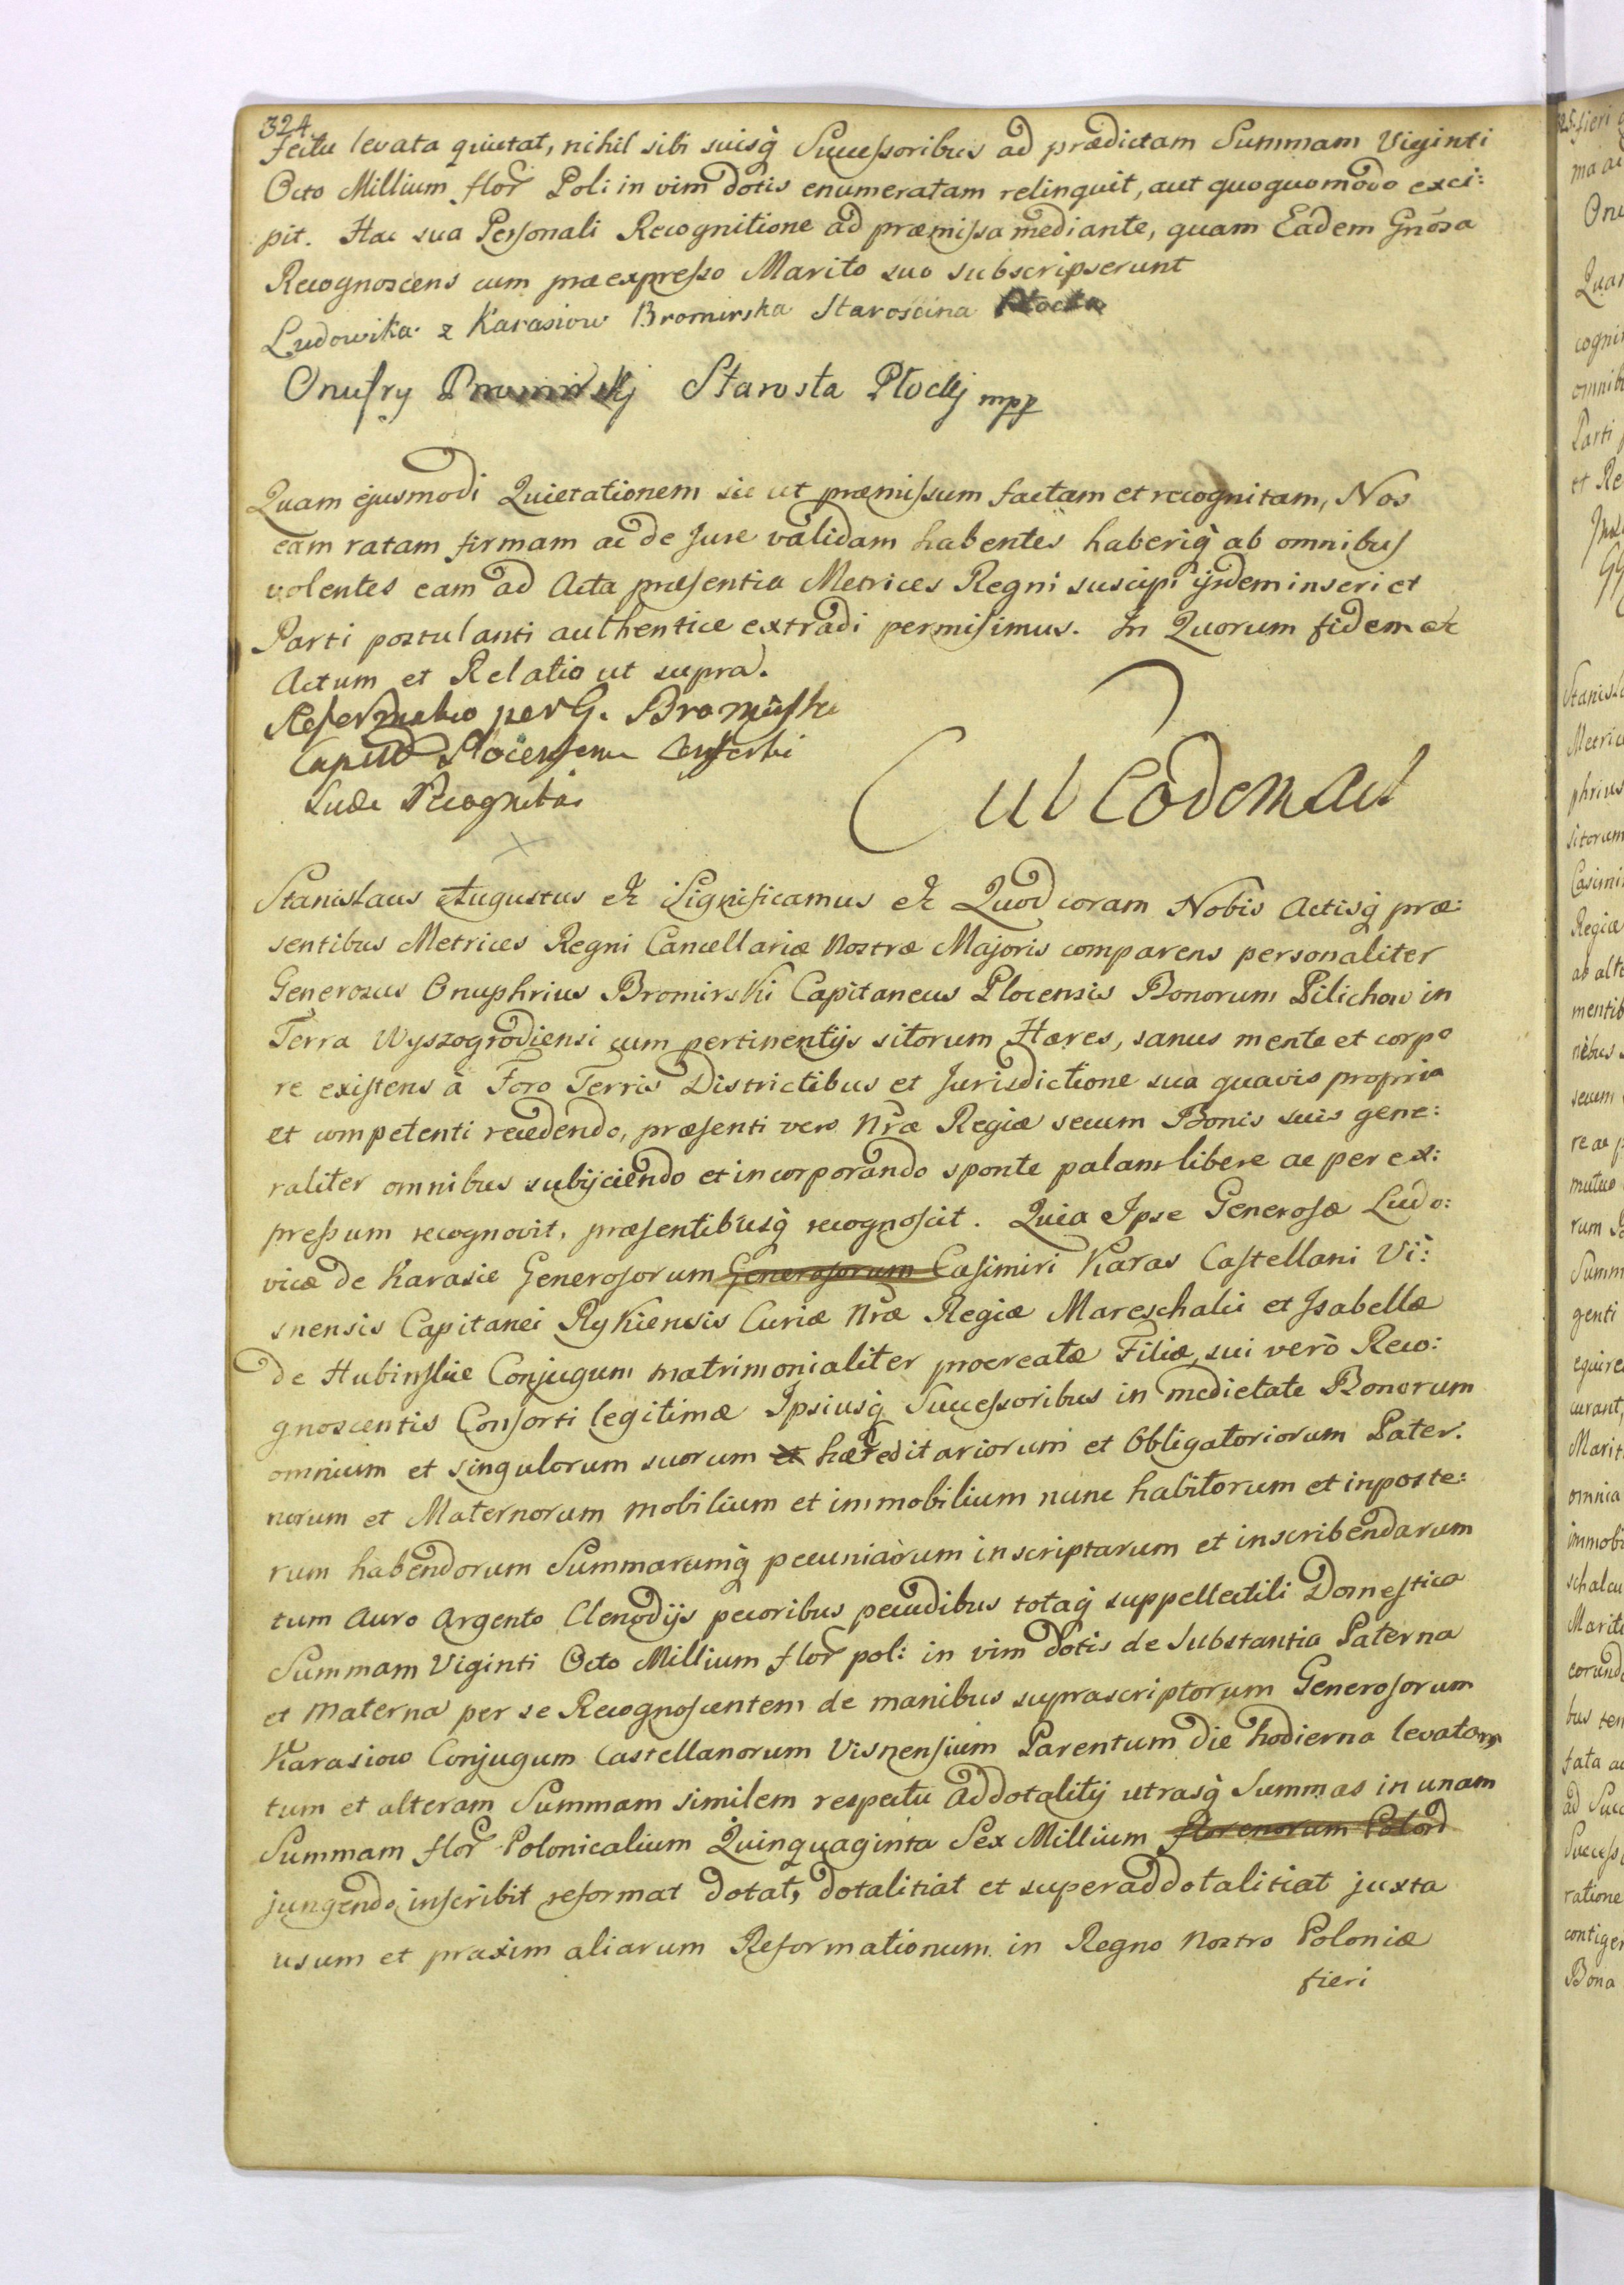 324.
fectu levata quietat, nihil sibi suisq̀ Successoribus ad prædictam Summam Viginti
Octo Millium flor Poli in vim dotis enumeratam relinquit, aut quoquomodo exci:
pit. Hac sua Personali Recognitione ad præmissa mediante, quam Eadem Gnõsa
Recognoscens cum præexpresso Marito suo subscripserunt
Ludowika z Karasiow Bromirska Starościna Płocka
Onufry Bromirskj Starosta Płockj mpp
Quam ejusmodi Quietationem sic ut præmissum factam et recognitam, Nos
eam ratam firmam ac de Jure validam habentes haberiq̀ ab omnibus
volentes eam ad Acta præsentia Metrices Regni suscipi ijsdem inseri et
Parti postulanti authentice extradi permisimus. In Quorum fidem etc
Actum et Relatio ut supra.
Reformatio per G. Bromirski
Capitã Plocensem Consorti
Suæ Recognita
Sub Eodem Act
Stanislaus Augustus etc Significamus etc Quod coram Nobis Actisq̀ præ:
sentibus Metrices Regni Cancellariæ Nostræ Majoris comparens personaliter
Generosus Onuphrius Bromirski Capitaneus Plocensis Bonorum Pilichow in
Terra Wyszogrodiensi cum pertinentijs sitorum Hæres, sanus mente et corpo
re existens à Foro Terris Districtibus et Jurisdictione sua quavis propria
et competenti recedendo, præsenti vero Nrã Regiæ secum Bonis suis gene:
raliter omnibus subijciendo et incorporando sponte palam libere ac per ex:
pressum recognovit, præsentibusq̀ recognoscit. Quia Ipse Generosæ Ludo:
vicæ de Karasie Generosorum Generosorum Casimiri Karas Castellani Vi:
snensis Capitanei Rykiensis Curiæ Nrã Regiæ Mareschalci et Isabellæ
De Hubinskie Conjugum matrimonialiter procreatæ Filiæ, sui verò Reco:
gnoscentis Consorti legitimæ Ipsiusq̀ Successoribus in medietate Bonorum
omnium et singulorum suorum et hæreditariorum et Obligatoriorum Pater:
norum et Maternorum mobilium et immobilium nunc habitorum et inposte:
rum habendorum Summarumq̀ pecuniàrum inscriptarum et inscribendarum
tum Auro Argento Clenodijs pecoribus pecudibus totaq̀ suppellectili Domestica
Summam Viginti Octo Millium flor pol: in vim dotis de Substantia Paterna
et Materna per se Recognoscentem de manibus suprascriptorum Generosorum
Karasiow Conjugum Castellanorum Visnensium Parentum die hodierna levatam
tum et alteram Summam similem respectu addotalitij utrasq̀ Summas in unam
Summam flor Polonicalium Quinquaginta Sex Millium florenorum Polon
jungendo, inscribit reformat dotat, dotalitiat et superaddotalitiat juxta
usum et praxim aliarum Reformationum in Regno Nostro Poloniæ
fieri